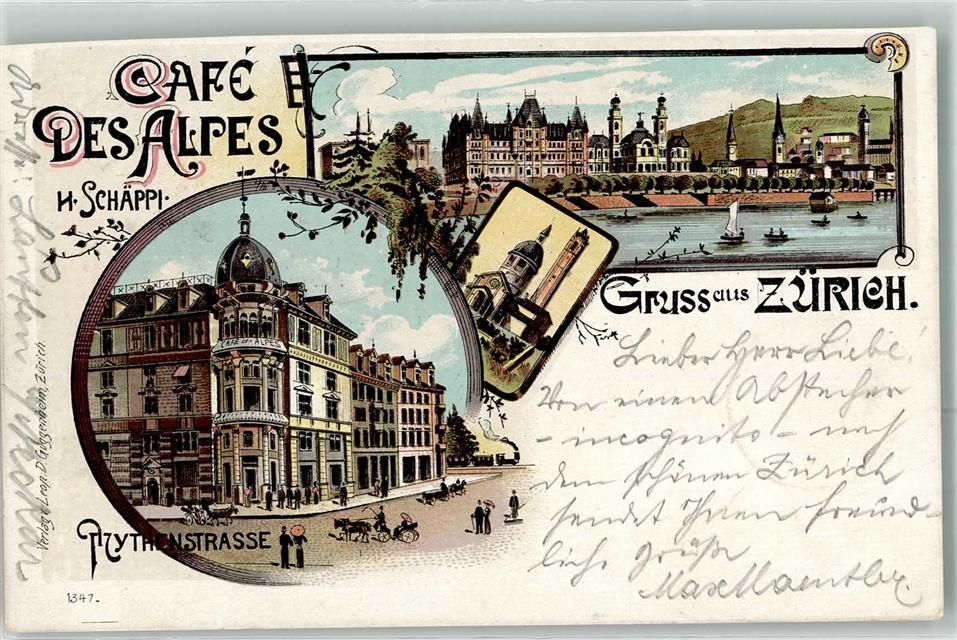 CAFÉ
DES ALPES
H. SCHÄPPI.
CAFÉ DES ALPES
MYTHENSTRASSE
Verlag v. Leop. D. Guggenheim, Zürich.
1347.
Gruss aus ZÜRICH.
Lieber Herr Liebe
Von einem Abstecher
- incognito - nach
dem schönen Zürich
sendet Ihnen freund-
liche Grüße
Max